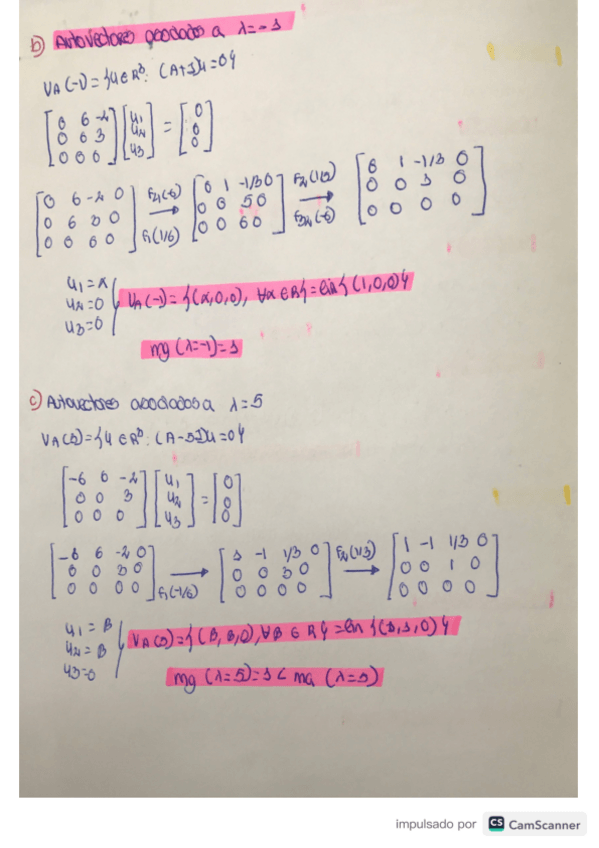 b) Autovectores asociados a λ=-1
VA(-1)={u∈R³: (A+I)u=0}
[0 6 -2; 0 6 3; 0 0 6] [u1; u2; u3] = [0; 0; 0]
[0 6 -2 0; 0 6 3 0; 0 0 6 0] → F21(-6) F1(1/6) [0 1 -1/3 0; 0 0 5 0; 0 0 6 0] → F2(1/5) F32(-6) [0 1 -1/3 0; 0 0 1 0; 0 0 0 0]
u1=α
u2=0
u3=0
VA(-1)={(α,0,0), ∀α∈R}=lin{(1,0,0)}
mg(λ=-1)=1
c) Autovectores asociados a λ=5
VA(5)={u∈R³: (A-5I)u=0}
[-6 6 -2; 0 0 3; 0 0 0] [u1; u2; u3] = [0; 0; 0]
[-6 6 -2 0; 0 0 3 0; 0 0 0 0] → F1(-1/6) [1 -1 1/3 0; 0 0 3 0; 0 0 0 0] → F2(1/3) [1 -1 1/3 0; 0 0 1 0; 0 0 0 0]
u1=β
u2=β
u3=0
VA(5)={(β,β,0),∀β∈R}=lin{(1,1,0)}
mg(λ=5)=1<ma(λ=5)
impulsado por CS CamScanner